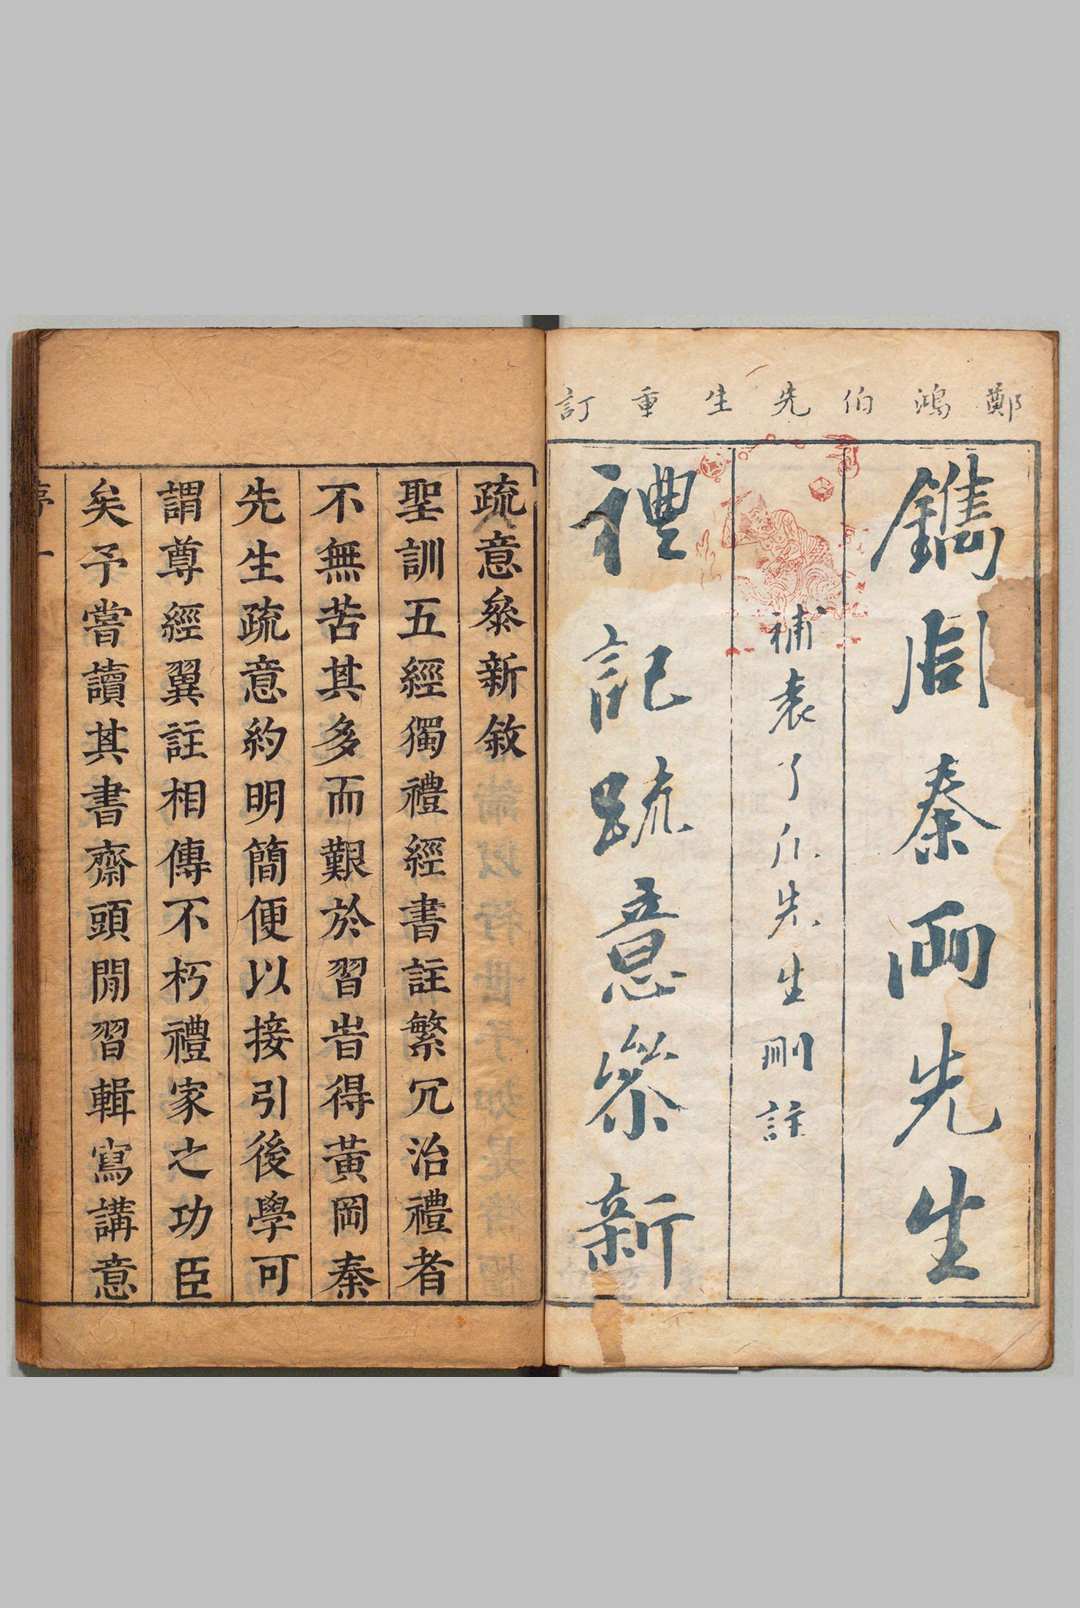 鄭鴻伯先生重訂
鐫周秦兩先生
補袁了凡先生刪註
禮記疏意叅新
疏意叅新敘
聖訓五經獨禮經書註繁冗治禮者
不無苦其多而艱於習旹得黃岡秦
先生疏意約明簡便以接引後學可
謂尊經翼註相傳不朽禮家之功臣
矣予嘗讀其書齋頭閒習輯寫講意